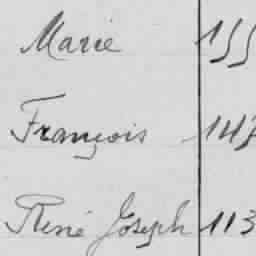 Marie 155
François 147
René Joseph 113